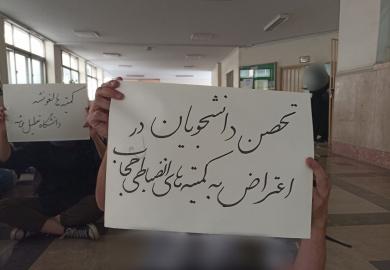 تحصن دانشجویان در
اعتراض به کمیته‌های انضباطی حجاب
کمیته‌ها لغو نشه
دانشگاه تعطیل میشه